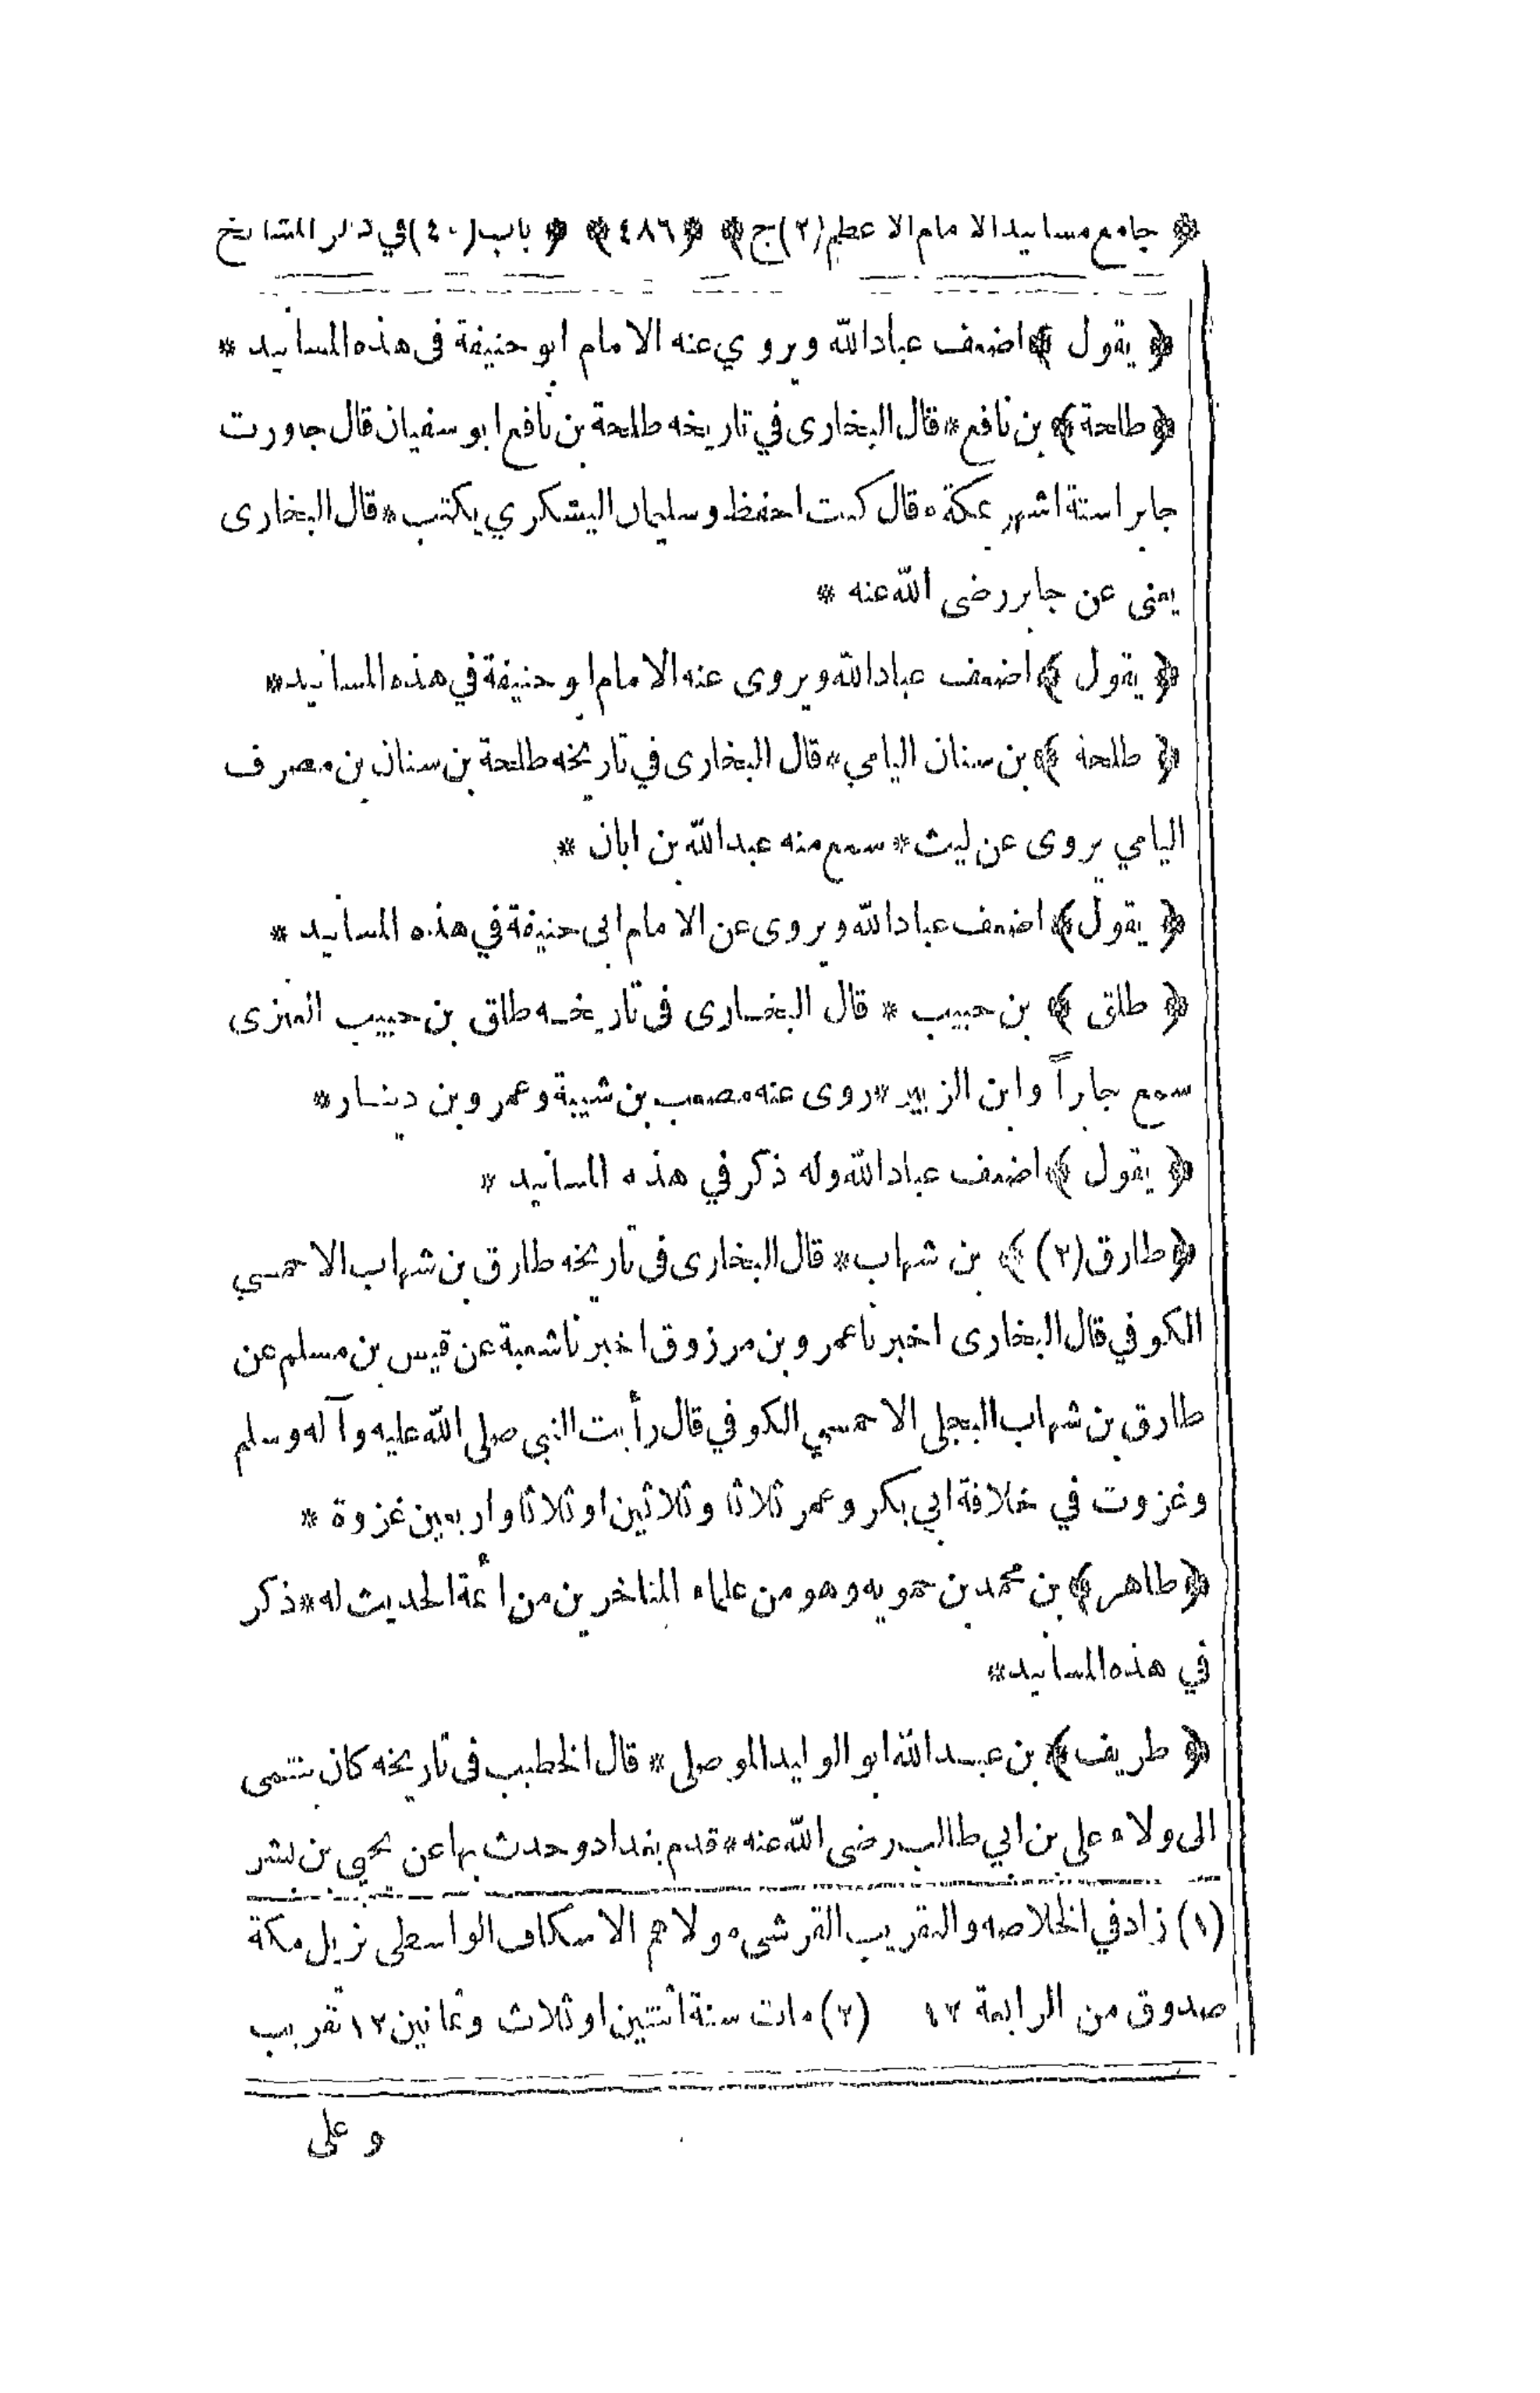 ﴿ جامع مسانيد الامام الاعظم (٢) ج ﴾ ﴿ ٤٨٦ ﴾ ﴿ باب (٤٠) في ذكر المشايخ
﴿ يقول ﴾ اضعف عباد الله ويروي عنه الامام ابو حنيفة فى هذه المسانيد *
﴿ طلحة ﴾ بن نافع * قال البخارى في تاريخه طلحة بن نافع ابو سفيان قال جاورت
جابر استة اشهر بمكة * قال كنت احفظ وسليمان اليشكري يكتب * قال البخارى
يعنى عن جابر رضى الله عنه *
﴿ يقول ﴾ اضعف عباد الله ويروى عنه الامام ابو حنيفة في هذه المسانيد *
﴿ طلحة ﴾ بن سنان اليامي * قال البخارى في تاريخه طلحة بن سنان بن مصرف
اليامي يروى عن ليث * سمع منه عبد الله بن ابان *
﴿ يقول ﴾ اضعف عباد الله ويروى عن الامام ابى حنيفة في هذه المسانيد *
﴿ طلق ﴾ بن حبيب * قال البخارى فى تاريخه طلق بن حبيب العنزى
سمع جابراً وابن الزبير * روى عنه مصعب بن شيبة وعمرو بن دينار *
﴿ يقول ﴾ اضعف عباد الله وله ذكر في هذه المسانيد *
﴿ طارق (٢) ﴾ بن شهاب * قال البخارى فى تاريخه طارق بن شهاب الاحمسي
الكوفي قال البخارى اخبرنا عمرو بن مرزوق اخبرنا شعبة عن قيس بن مسلم عن
طارق بن شهاب البجلى الاحمسي الكوفي قال رأيت النبي صلى الله عليه وآله وسلم
وغزوت في خلافة ابي بكر وعمر ثلاثا وثلاثين او ثلاثا واربعين غزوة *
﴿ طاهر ﴾ بن محمد بن حمويه وهو من علماء المتاخرين من أئمة الحديث له * ذكر
في هذه المسانيد *
﴿ طريف ﴾ بن عبد الله ابو الوليد الموصلى * قال الخطيب فى تاريخه كان ينتمى
الى ولاء على بن ابي طالب رضى الله عنه * قدم بغداد وحدث بها عن يحيى بن بشر
(١) زاد في الخلاصه والتقريب القرشى مولاهم الاسكاف الواسطى نزيل مكة
صدوق من الرابعة ١٢ (٢) مات سنة اثنتين او ثلاث وثمانين ١٢ تقريب
وعلى